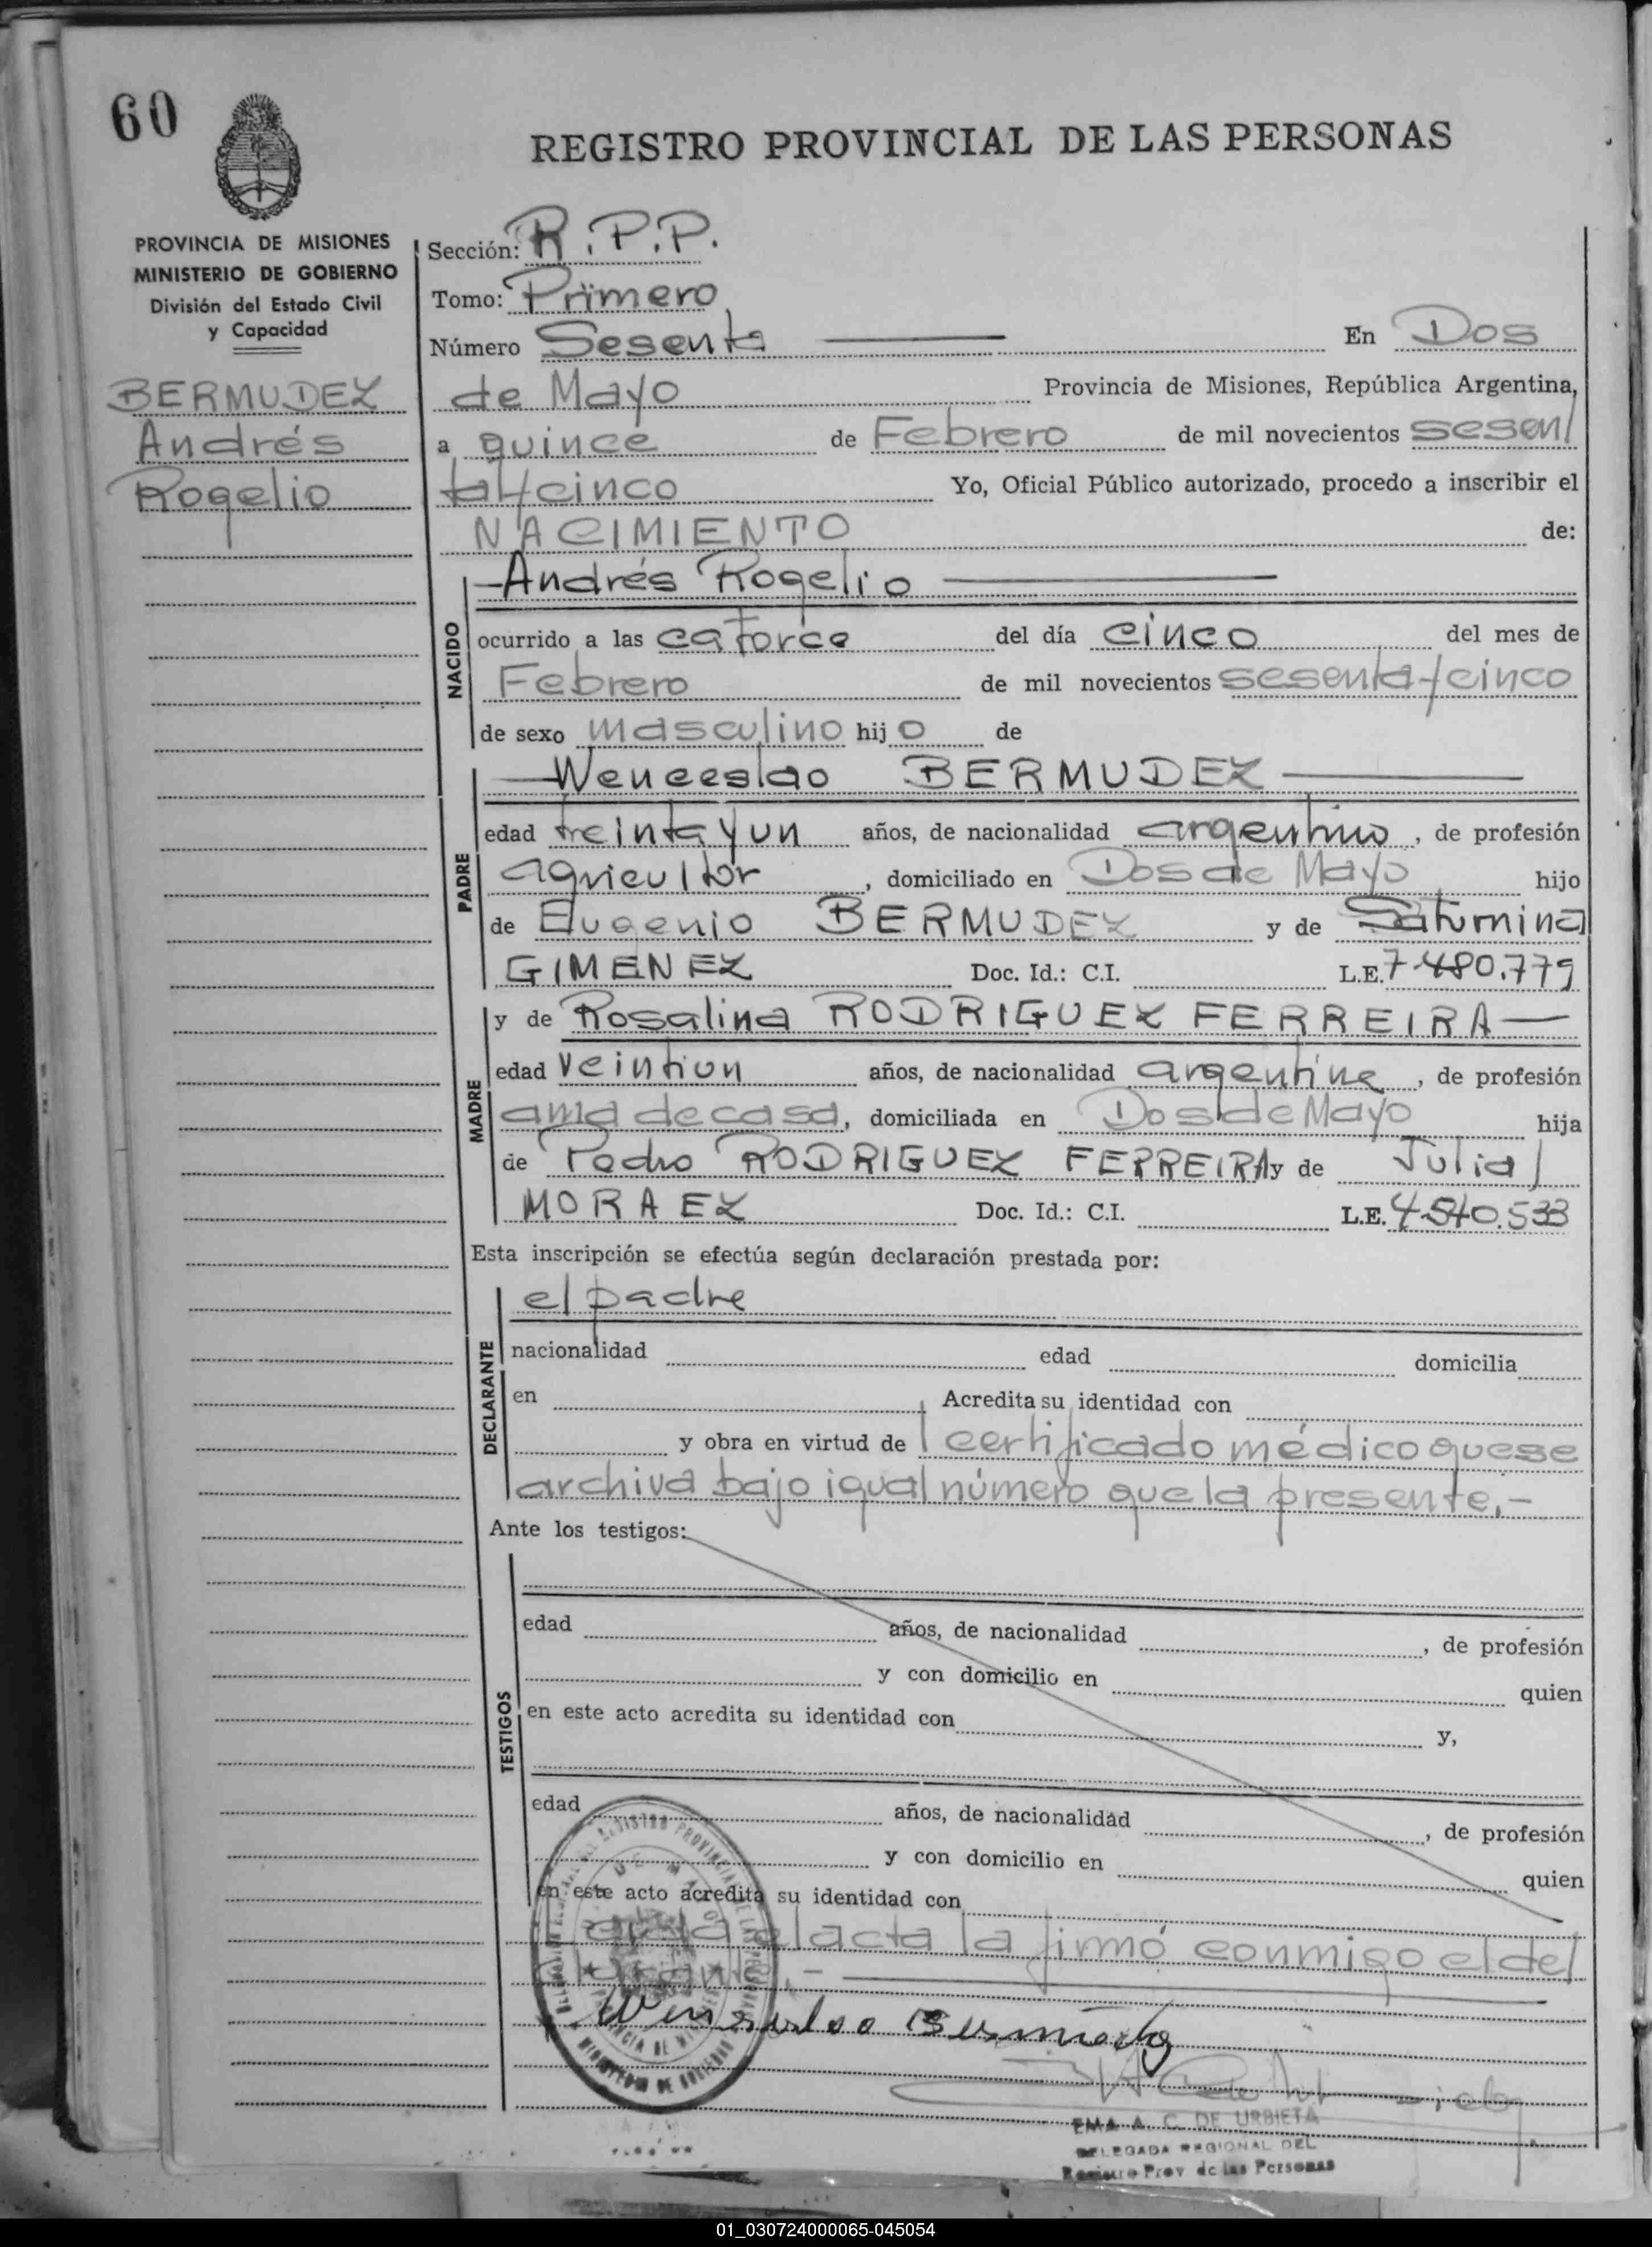 60
REGISTRO PROVINCIAL DE LAS PERSONAS
PROVINCIA DE MISIONES
MINISTERIO DE GOBIERNO
División del Estado Civil
y Capacidad
BERMUDEZ
Andrés
Rogelio
Sección: R.P.P.
Tomo: Primero
Número Sesenta En Dos
de Mayo Provincia de Misiones, República Argentina,
a quince de Febrero de mil novecientos sesen/
taycinco Yo, Oficial Público autorizado, procedo a inscribir el
NACIMIENTO de:
NACIDO
—Andrés Rogelio—
ocurrido a las catorce del día cinco del mes de
Febrero de mil novecientos sesentaycinco
de sexo masculino hijo de
PADRE
—Wenceslao BERMUDEZ—
edad treintayun años, de nacionalidad argentino, de profesión
agricultor, domiciliado en Dos de Mayo hijo
de Eugenio BERMUDEZ y de Saturnina
GIMENEZ Doc. Id.: C.I. L.E. 7.480.779
MADRE
y de Rosalina RODRIGUEZ FERREIRA—
edad veintiun años, de nacionalidad argentina, de profesión
ama de casa, domiciliada en Dos de Mayo hija
de Pedro RODRIGUEZ FERREIRA y de Julia/
MORAEZ Doc. Id.: C.I. L.E. 4.540.533
Esta inscripción se efectúa según declaración prestada por:
DECLARANTE
el padre
nacionalidad edad domicilia
en Acredita su identidad con
y obra en virtud de certificado médico que se
archiva bajo igual número que la presente.-
Ante los testigos:
TESTIGOS
edad años, de nacionalidad , de profesión
y con domicilio en quien
en este acto acredita su identidad con y,
edad años, de nacionalidad , de profesión
y con domicilio en quien
en este acto acredita su identidad con
el acta la firmó conmigo el de/
EMA A. C. DE URBIETA
DELEGADA REGIONAL DEL
Registro Prov de las Personas
01_030724000065-045054